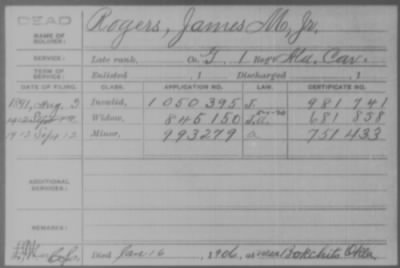 DEAD
NAME OF SOLDIER: Rogers, James M, Jr.
SERVICE: Late rank, Co. G, 1 Reg't Fla. Cav.
TERM OF SERVICE: Enlisted , 1 Discharged , 1
DATE OF FILING. CLASS. APPLICATION NO. LAW. CERTIFICATE NO.
1891, Aug. 3 Invalid, 1050395 J. 981741
Widow, 845150 681858
1912 Sept 12 Minor, 993279 a 751433
ADDITIONAL SERVICES:
REMARKS:
Died Jan 16, 1906, at near Bokchito Okla.